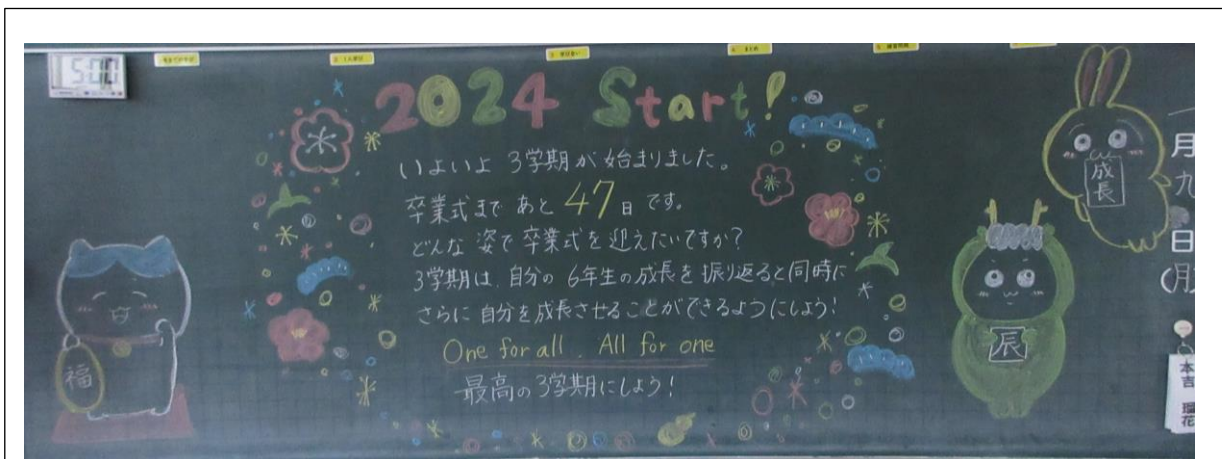 5:00
2024 Start!
いよいよ 3学期が始まりました。
卒業式まで あと 47日です。
どんな 姿で 卒業式を 迎えたいですか?
3学期は、自分の 6年生の成長を 振り返ると同時に
さらに 自分を成長させることができるようにしよう!
One for all . All for one
最高の3学期にしよう!
福
辰
成長
月
九
日
(月